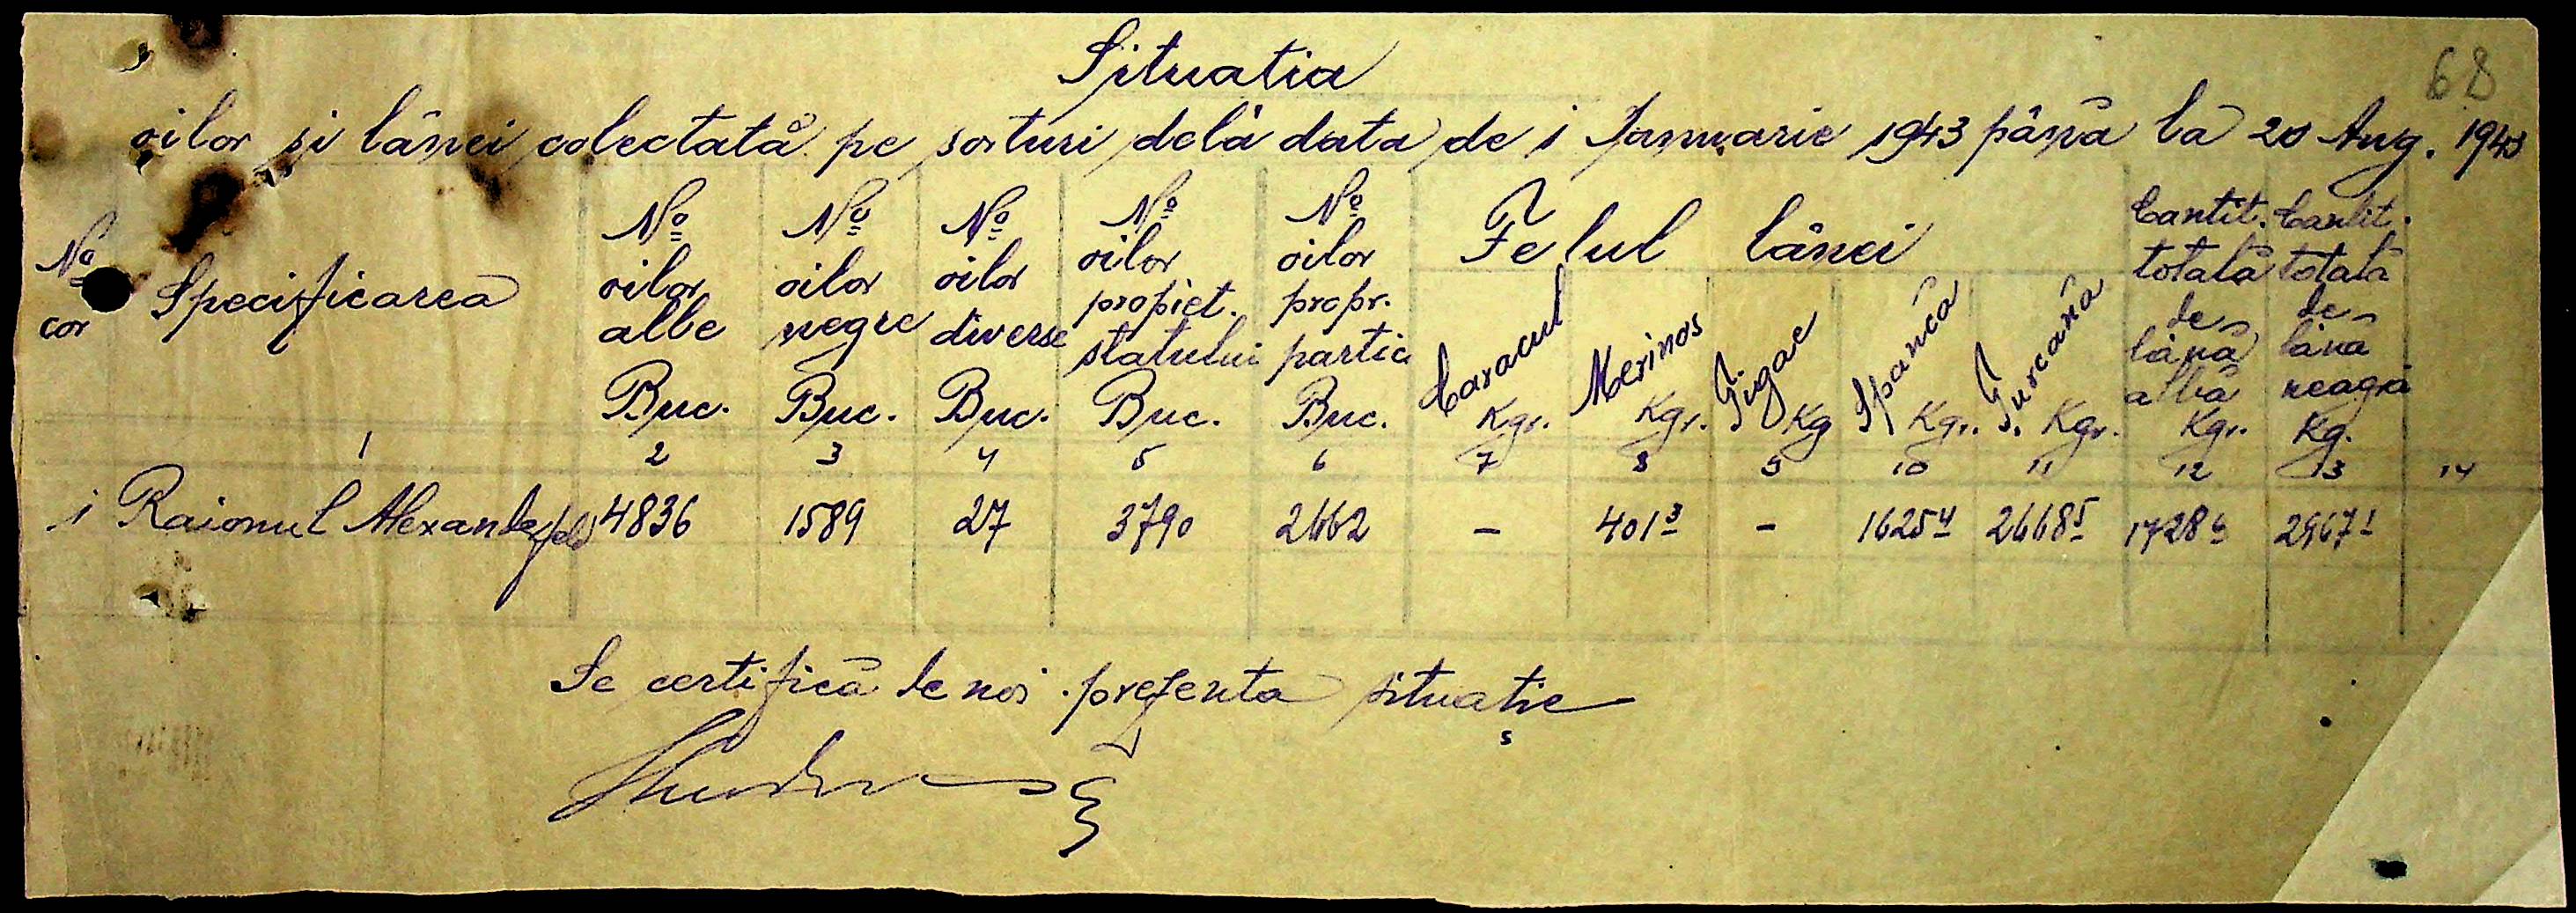 68
Situatia
oilor și lânei colectată pe sorturi dela data de 1 Ianuarie 1943 până la 20 Aug. 1943
No cor
Specificarea
No oilor albe Buc.
No oilor negre Buc.
No oilor diverse Buc.
No oilor propiet. statului Buc.
No oilor propr. partic Buc.
Felul lânei
Caracul Kgr.
Merinos Kgr.
Țigae Kg
Spancă Kgr.
Țurcană Kgr.
Cantit. totală de lână albă Kgr.
Cantit. totală de lâna neagră Kg.
1 2 3 4 5 6 7 8 9 10 11 12 13 14
1 Raionul Alexanderfeld 4836 1589 27 3790 2662 - 401³ - 1625⁴ 2668⁵ 1728⁶ 2967¹
Se certifică de noi prezenta situație